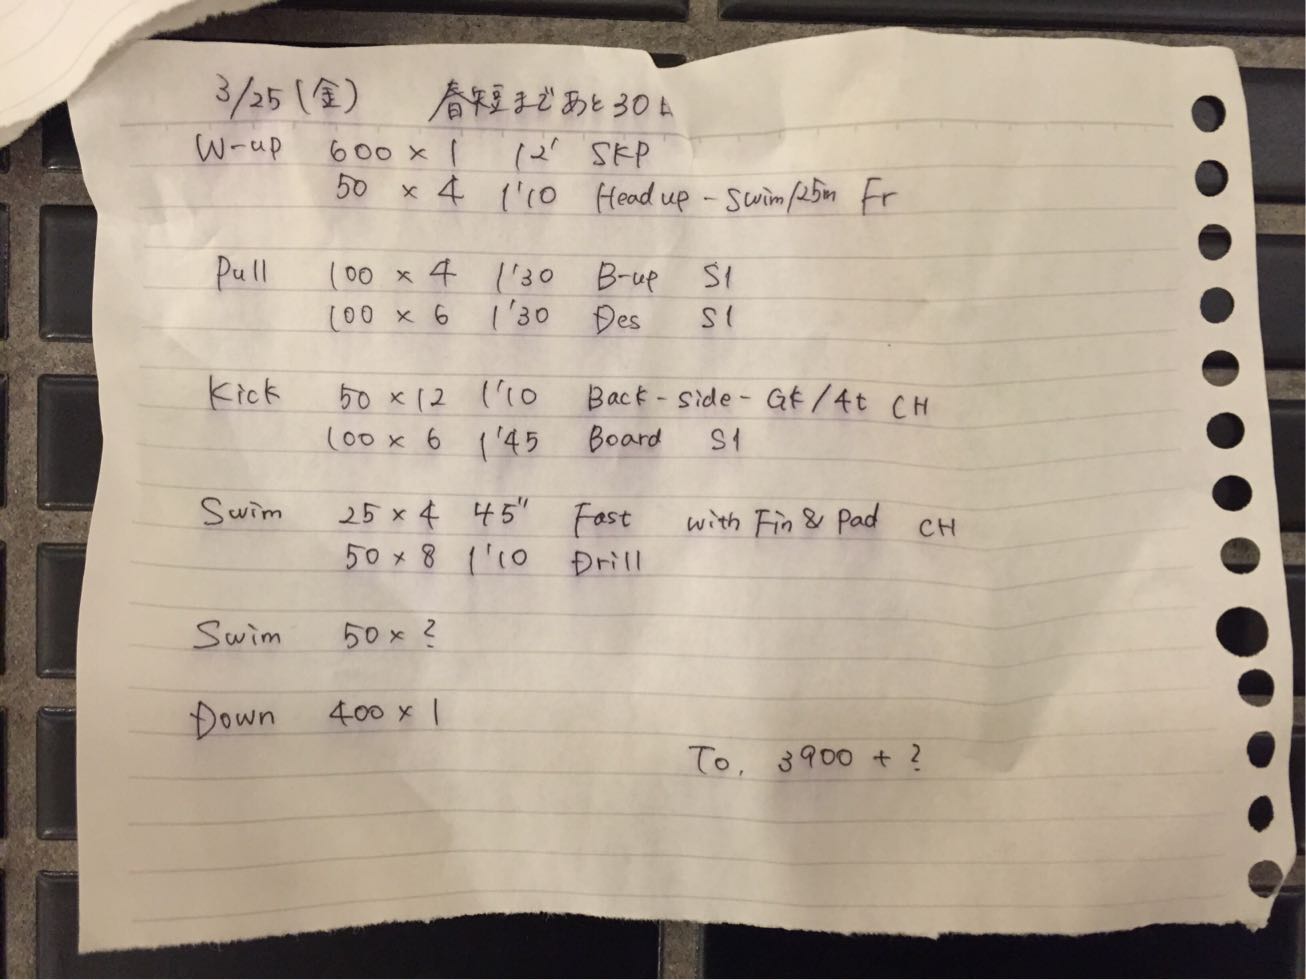 3/25 (金) 春短まであと30日
W-up 600 × 1 12' SKP
50 × 4 1'10 Head up - Swim/25m Fr
Pull 100 × 4 1'30 B-up S1
100 × 6 1'30 Des S1
Kick 50 × 12 1'10 Back - side - GK/4t CH
100 × 6 1'45 Board S1
Swim 25 × 4 45" Fast with Fin & Pad CH
50 × 8 1'10 Drill
Swim 50 × ?
Down 400 × 1
To. 3900 + ?